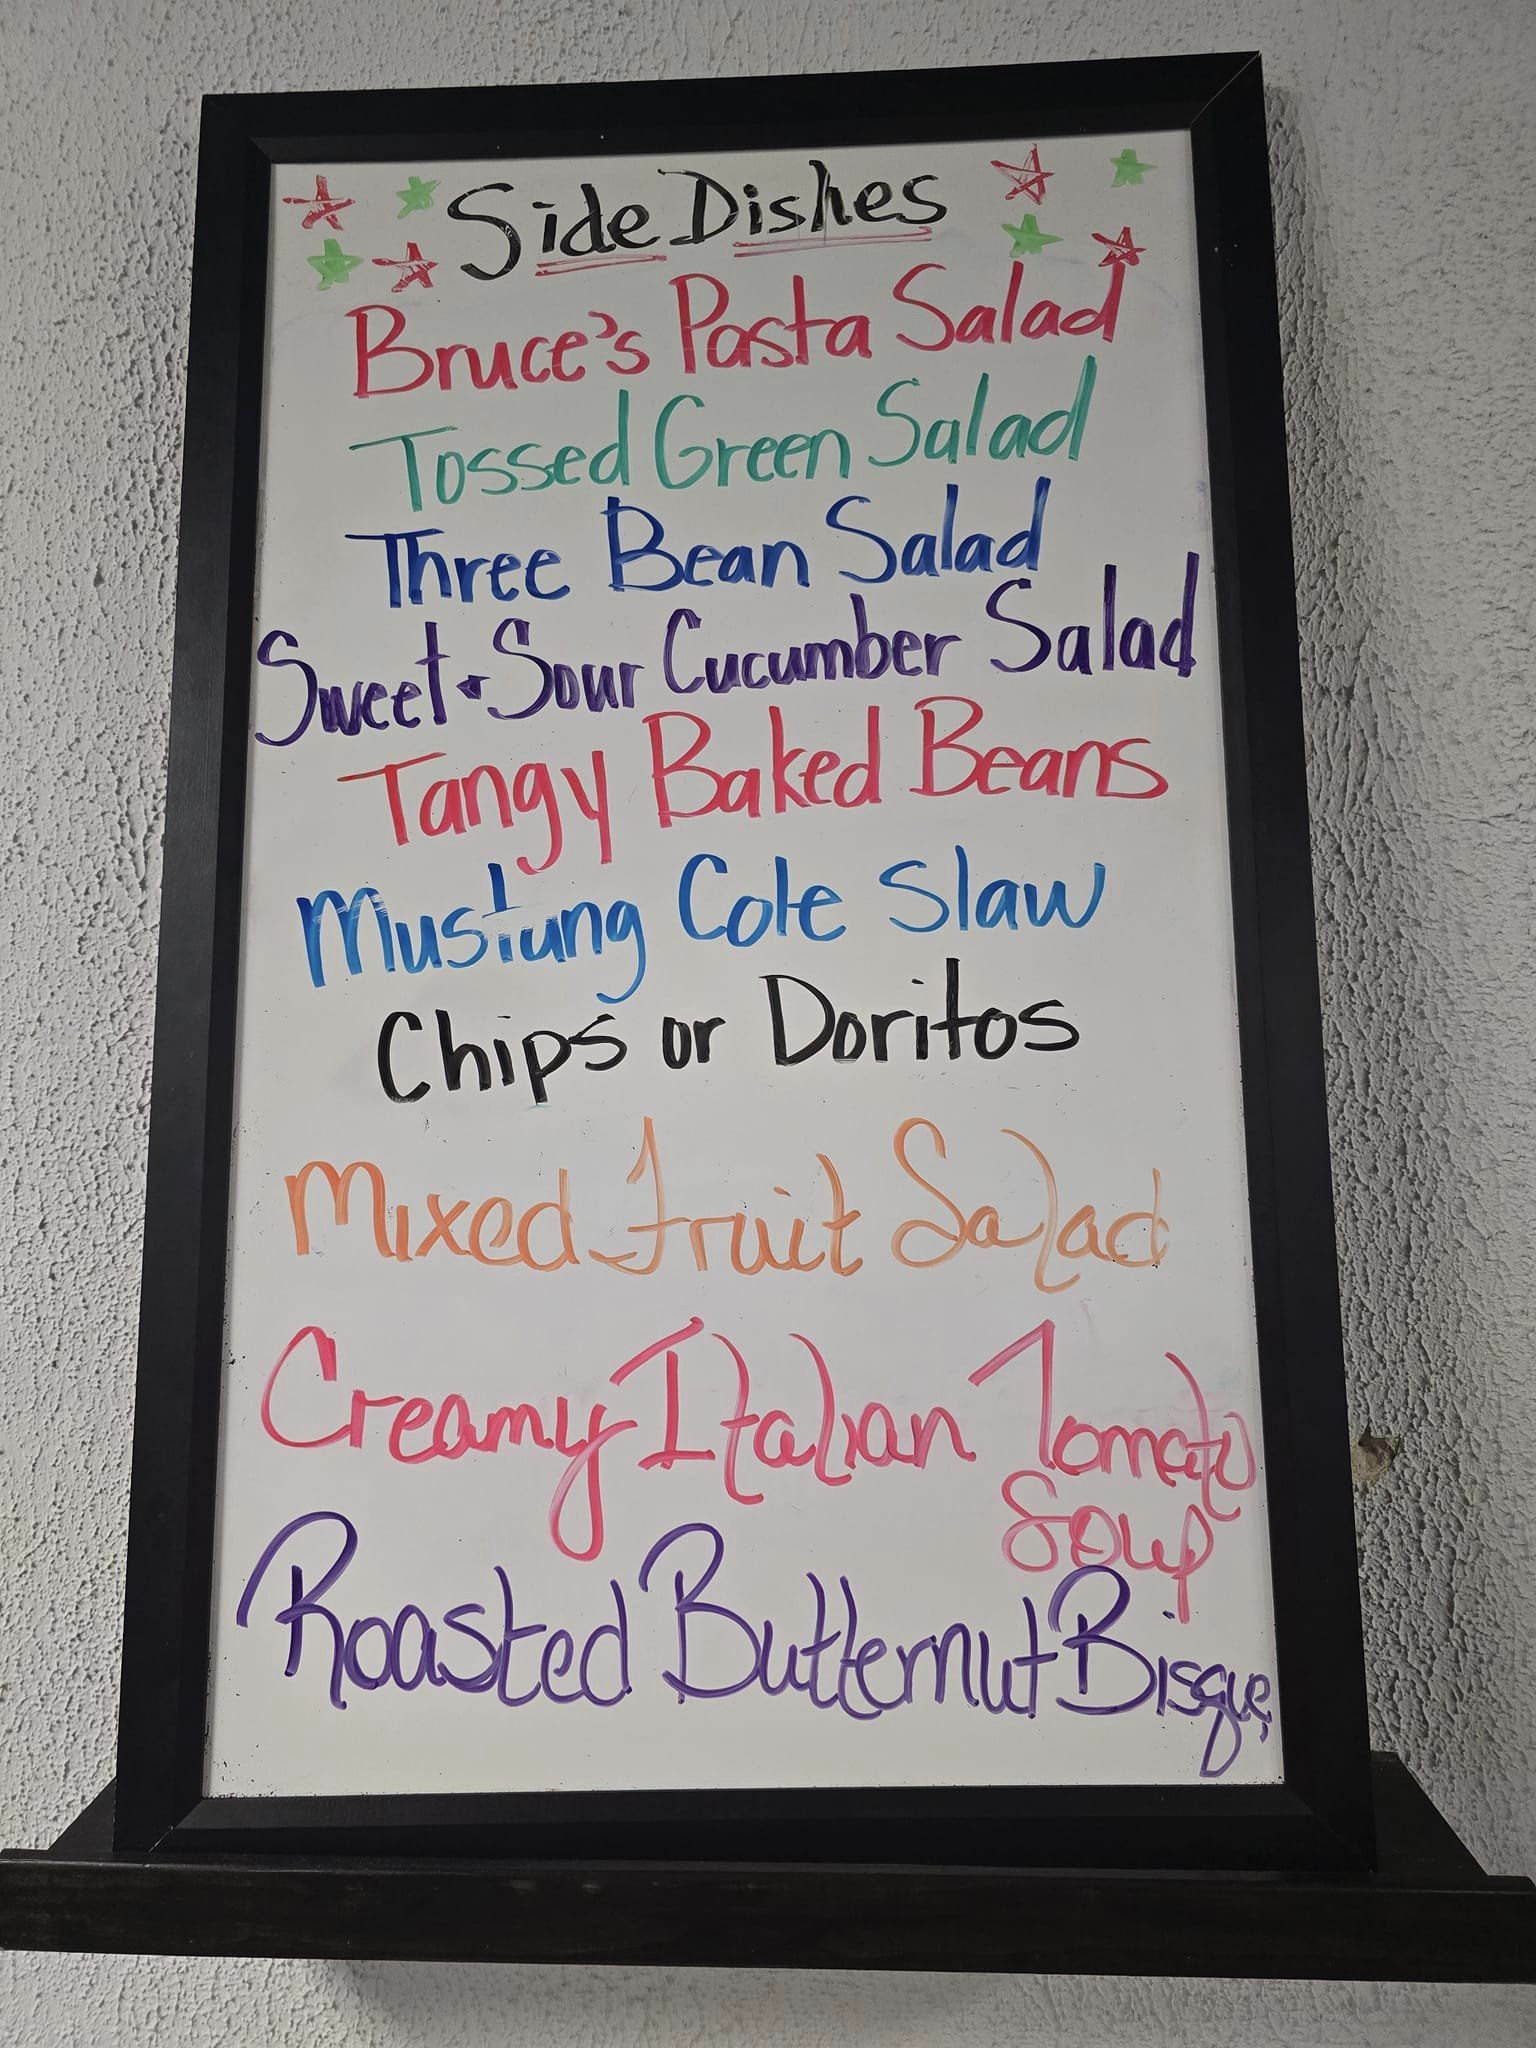 Side Dishes
Bruce's Pasta Salad
Tossed Green Salad
Three Bean Salad
Sweet + Sour Cucumber Salad
Tangy Baked Beans
Mustang Cole Slaw
Chips or Doritos
Mixed Fruit Salad
Creamy Italian Tomato
Soup
Roasted Butternut Bisque